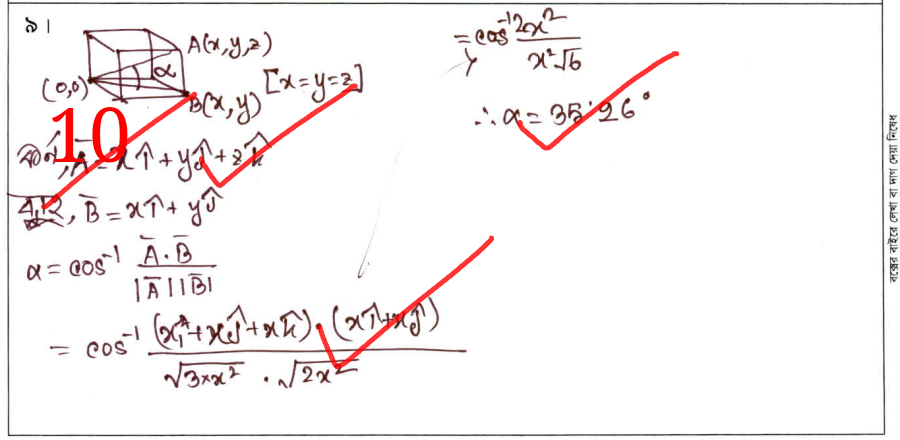 ৯।
A(x,y,z)
(0,0)
α
[x=y=z]
B(x,y)
10
ধরি, A̅ = xî + yĵ + zk̂
B̅ = xî + yĵ
α = cos⁻¹ A̅.B̅ / |A̅||B̅|
= cos⁻¹ (xî+xĵ+xk̂).(xî+xĵ) / √3×x² . √2x²
= cos⁻¹ 2x² / x²√6
∴ α = 35.26°
বক্সের বাইরে লেখা বা দাগ দেয়া নিষেধ